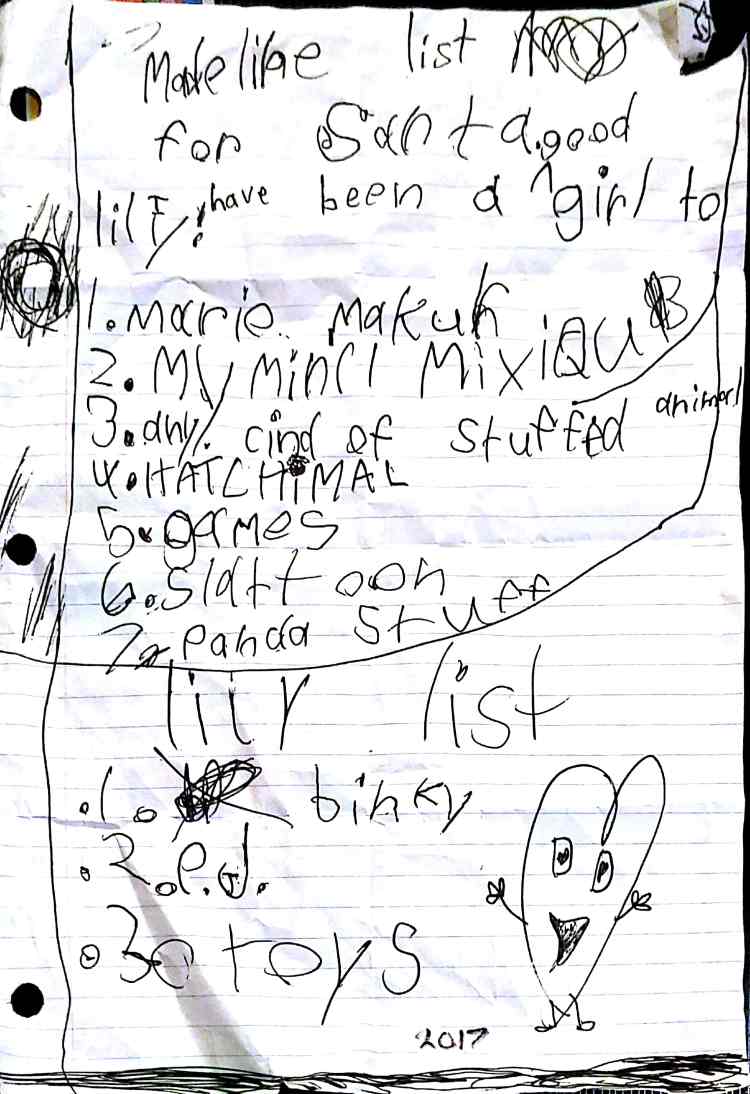 Madeline list
for Santa. good
lily! I have been a ^ girl to
1. Marie. Makuh
2. My Mini MixiQUB
3. any. cind of stuffed animal
4. HATCHiMAL
5. games
6. Slattoon
7. Panda Stuff
lily list
.1. binky
.2. P.J.
.3. toys
2017